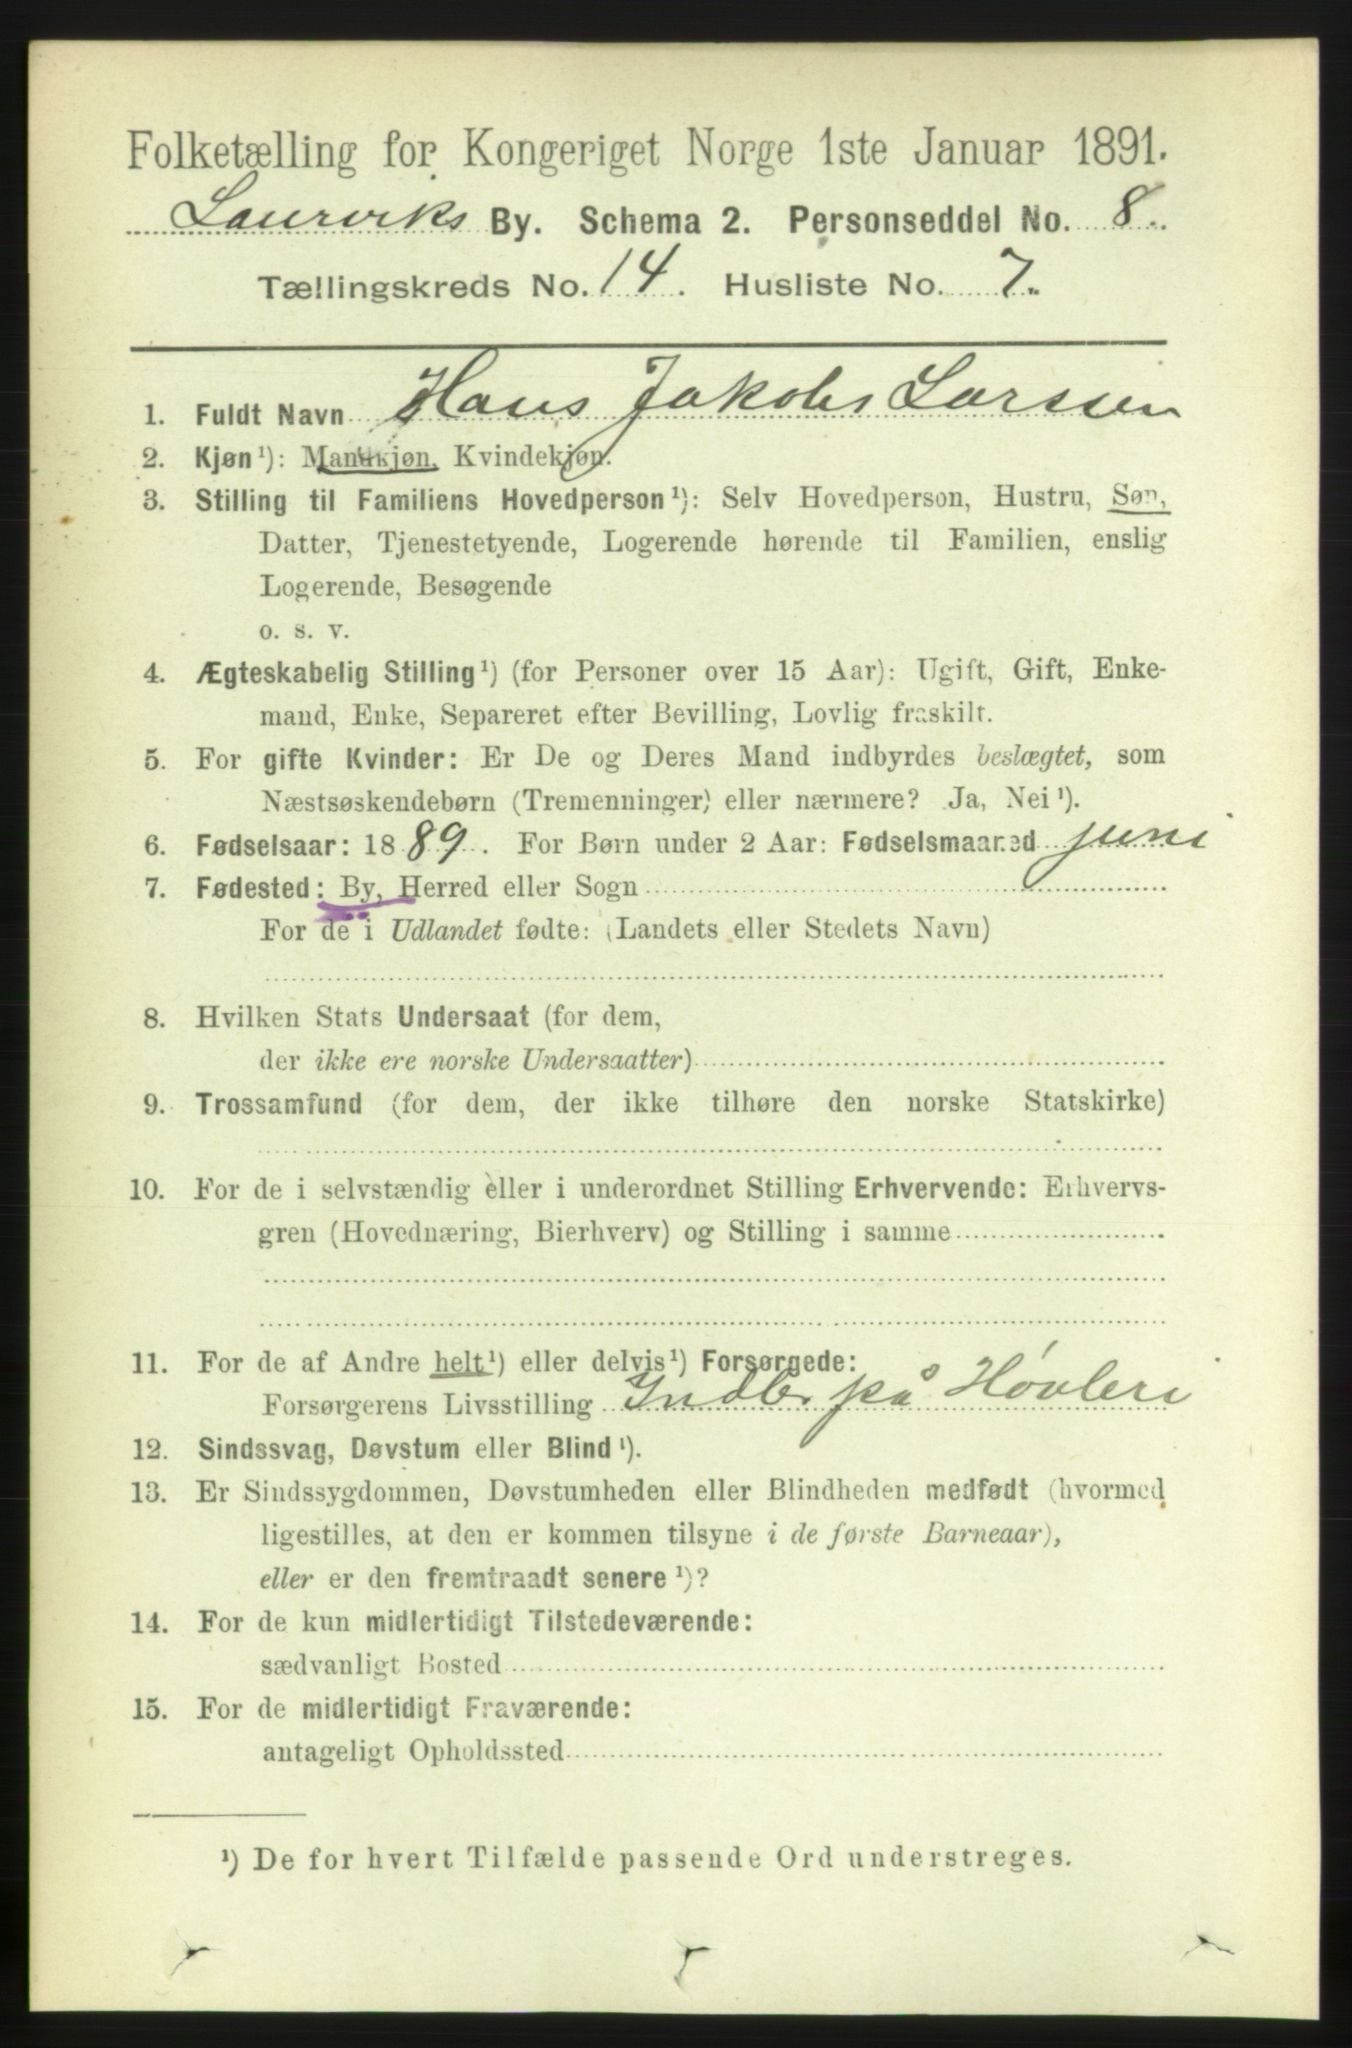 Folketælling for Kongeriget Norge 1ste Januar 1891.
Laurviks By. Schema 2. Personseddel No. 8.
Tællingskreds No. 14. Husliste No. 7.
1. Fuldt Navn Hans Jakob Larsen
2. Kjøn¹): Mandkjøn, Kvindekjøn.
3. Stilling til Familiens Hovedperson¹): Selv Hovedperson, Hustru, Søn,
Datter, Tjenestetyende, Logerende hørende til Familien, enslig
Logerende, Besøgende
o. s. v.
4. Ægteskabelig Stilling¹) (for Personer over 15 Aar): Ugift, Gift, Enke-
mand, Enke, Separeret efter Bevilling, Lovlig fraskilt.
5. For gifte Kvinder: Er De og Deres Mand indbyrdes beslægtet, som
Næstsøskendebørn (Tremenninger) eller nærmere? Ja, Nei¹).
6. Fødselsaar: 1889. For Børn under 2 Aar: Fødselsmaaned juni
7. Fødested: By, Herred eller Sogn
For de i Udlandet fødte: (Landets eller Stedets Navn)
8. Hvilken Stats Undersaat (for dem,
der ikke ere norske Undersaatter)
9. Trossamfund (for dem, der ikke tilhøre den norske Statskirke)
10. For de i selvstændig eller i underordnet Stilling Erhvervende: Erhvervs-
gren (Hovednæring, Bierhverv) og Stilling i samme
11. For de af Andre helt¹) eller delvis¹) Forsørgede:
Forsørgerens Livsstilling på Høvleri
12. Sindssvag, Døvstum eller Blind¹).
13. Er Sindssygdommen, Døvstumheden eller Blindheden medfødt (hvormed
ligestilles, at den er kommen tilsyne i de første Barneaar),
eller er den fremtraadt senere¹)?
14. For de kun midlertidigt Tilstedeværende:
sædvanligt Bosted
15. For de midlertidigt Fraværende:
antageligt Opholdssted
¹) De for hvert Tilfælde passende Ord understreges.